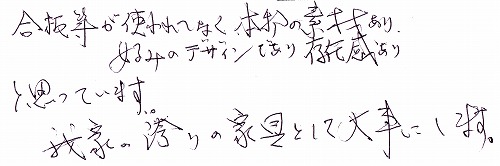 合板等が使われてなく本物の素材であり、
好みのデザインであり存在感あり
と思っています。
我家の誇りの家具として大事にします。